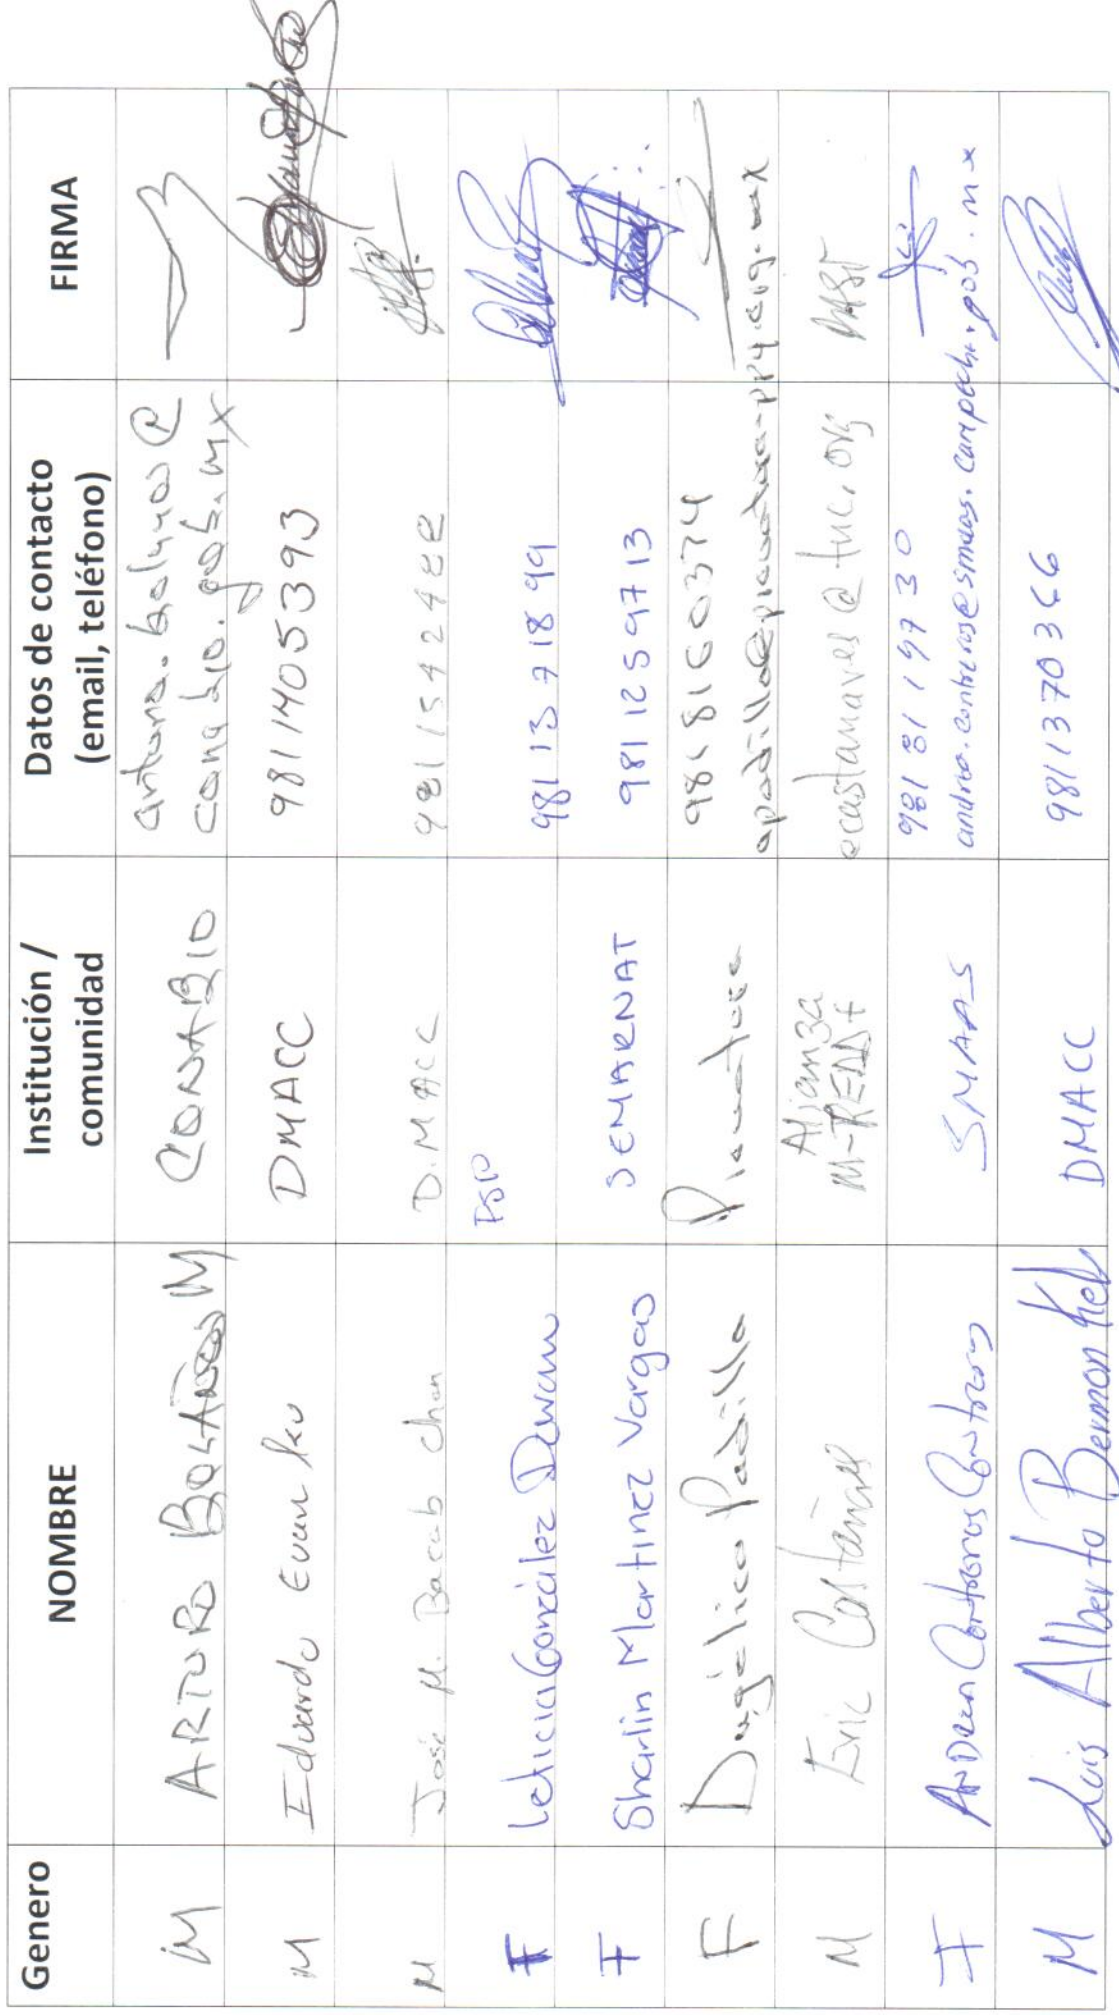 Genero NOMBRE Institución / comunidad Datos de contacto (email, teléfono) FIRMA
M ARTURO BOLAÑOS M CONABIO arturo.bolanos@
conabio.gob.mx
M Eduardo Evan DMACC 9811405393
M José M. Bacab Chan D.MACC 9811542482
F Leticia González Duran PSP 9811371899
F Sharlin Martinez Vargas SEMARNAT 9811259713
F Angelica Padilla Pronatura 9818160374
apadilla@pronatura-ppy.org.mx
M Eric Castañares Alianza
M-REDD+ ecastanares@tnc.org
F ANDREA Contreras Contreras SMAAS 9818119730
andrea.contreras@smaas.campeche.gob.mx
M Luis Alberto Bermon Keb DMACC 9811370366